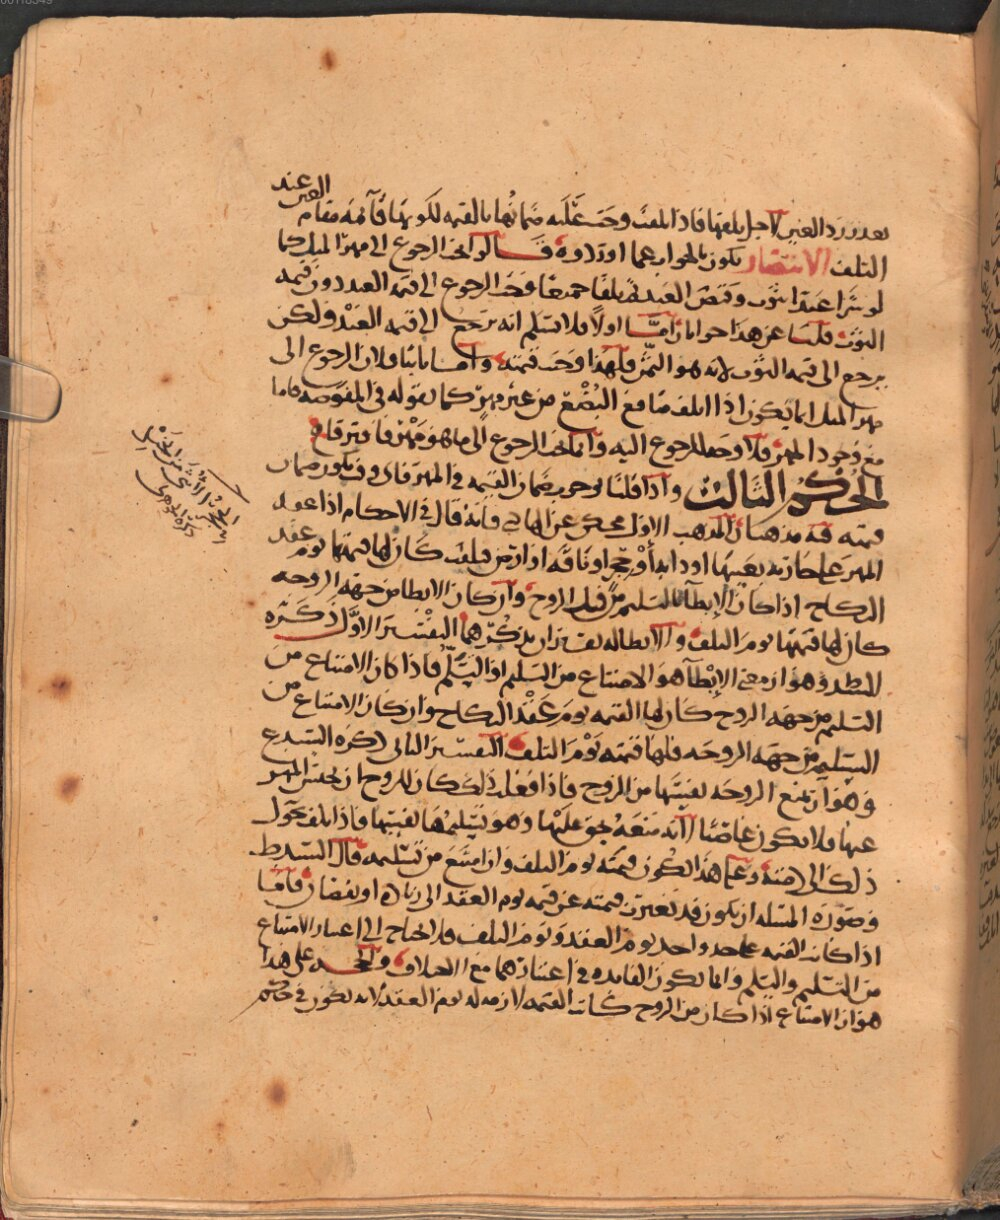 بعد ورد العين لاجل تلفها فاذا تلفت وجب عليه ضمانها بالقيمه لكونها قائمه مقام العين عند
التلف الانتصار يكون بالجواب عما اوردوه قالوا يجب الرجوع الى مهر المثل كما
لو شرا عبدا بثوب وقبض العبد فتلفا جميعا فيجب الرجوع الى قيمه العبد دون قيمه
الثوب قلنا عن هذا جوابان اما اولا فلا نسلم انه يرجع الى قيمه العبد ولكن
يرجع الى قيمه الثوب لانه هو الثمن فلهذا وجبت قيمته واما ثانيا فلان الرجوع الى
مهر المثل انما يكون اذا اتلف منافع البضع من غير مهر كما نقوله في المفوضه فاما
مع وجود المهر فلا وجه للرجوع اليه وانما يجب الرجوع الى ما هو مهر فافترقا
الحكم الثالث واذا قلنا بوجوب ضمان القيمه في المهر فاي وقت يكون ضمان
قيمته فيه مذهبان المذهب الاول محكي عن الهادي فانه قال في الاحكام اذا عقد
المهر على جاريه بعينها او دابه او بحجر او ناقه او ارض فتلفت كان لها قيمتها يوم عقد
النكاح اذا كان الابطا بالتسليم من قبل الزوج وان كان الابطا من جهه الزوجه
كان لها قيمتها يوم التلف والابطا له تفسيران نذكرهما التفسير الاول ذكره
وهو ان معنى الابطآ هو الامتناع من التسليم او التسلم فاذا كان الامتناع من
التسليم من جهه الزوج كان لها القيمه يوم عقد النكاح وان كان الامتناع من
التسليم من جهه الزوجه فلها قيمته يوم التلف التفسير الثاني ذكره السيد ع
وهو ان تمنع الزوجه نفسها من الزوج فاذا فعلت ذلك كان للزوج ان يحبس المهر
عنها فلا يكون غاصبا لانه منعه بحق عليها وهو تسليمها نفسها فاذا تلف تحول
ذلك الى ذمته وعلى هذا تكون قيمته يوم التلف وان امتنع من تسليمه قال السيد ط
وصوره المسئله ان يكون قد تغيرت قيمته عن قيمه يوم العقد الى زياده او نقصان فاما
اذا كانت القيمه على حد واحد يوم العقد ويوم التلف فلا يحتاج الى اعتبار الامتناع
من التسليم والتسلم وانما يكون الفايده في اعتبارهما مع الخلاف والحجه على هذا
هو ان الامتناع اذا كان من الزوج كانت القيمه لازمه له يوم العقد لانه يكون في حكم